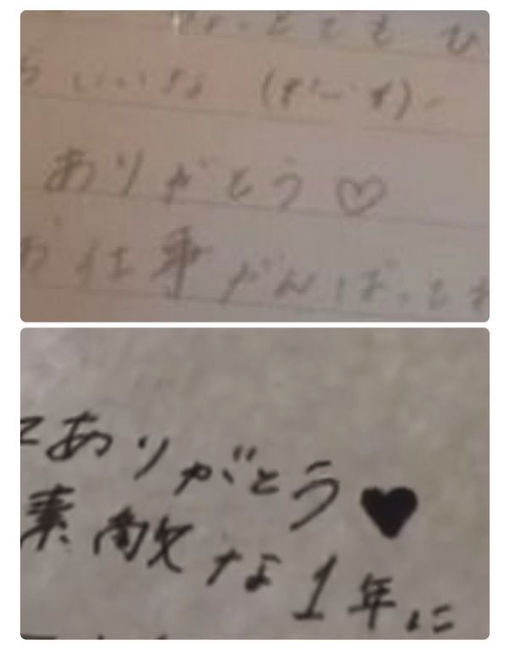 とても ひ
らいいな
ありがとう♡
お仕事がんばってね
てありがとう♥
素敵な1年に